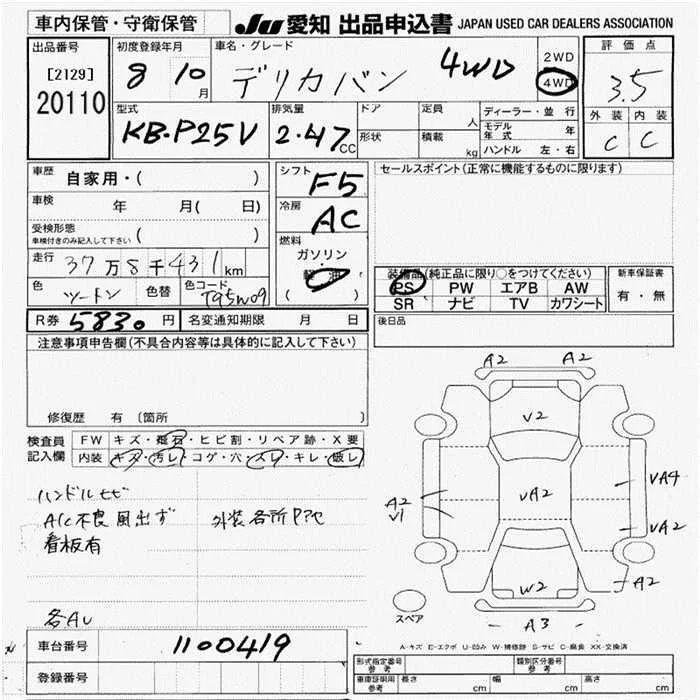 車内保管・守衛保管
JU 愛知 出品申込書 JAPAN USED CAR DEALERS ASSOCIATION
出品番号
[2129]
20110
初度登録年月
8 10 月
車名・グレード
デリカバン 4WD
2WD
4WD
評価点
3.5
外装 内装
C C
型式
KB-P25V
排気量
2.47 CC
ドア
形状
定員 人
積載 kg
ディーラー・並行
モデル年式 年
ハンドル 左・右
車歴 自家用・( )
車検 年 月( 日)
受検形態
車検付きのみ記入して下さい ( )
走行 37万8千431km
色 ツートン 色替 色コード T95W09
シフト F5
冷房 AC
燃料
ガソリン
軽油
( )
セールスポイント(正常に機能するものに限ります)
装備品(純正品に限り○をつけてください)
PS PW エアB AW
SR ナビ TV カワシート
新車保証書
有・無
R券 5830 円 名変通知期限 月 日
後日品
注意事項申告欄(不具合内容等は具体的に記入して下さい)
修復歴 有 〔箇所 〕
検査員記入欄
FW キズ・飛石・ヒビ割・リペア跡・X要
内装 キズ・汚レ・コゲ・穴・スレ・キレ・破レ
ハンドルヒビ
A/C不良 風出ず 外装各所P?セ
看板有
各AU
A2 A2
V2
VA2
A2
V1
VA4
VA2
W2
A2
A3
スペア
A-キズ E-エクボ U-凹み W-補修跡 S-サビ C-腐食 XX-交換済
車台番号 1100419
登録番号
形式指定番号 参考
類別区分番号 参考
車庫証明用 参考 長さ cm 幅 cm 高さ cm